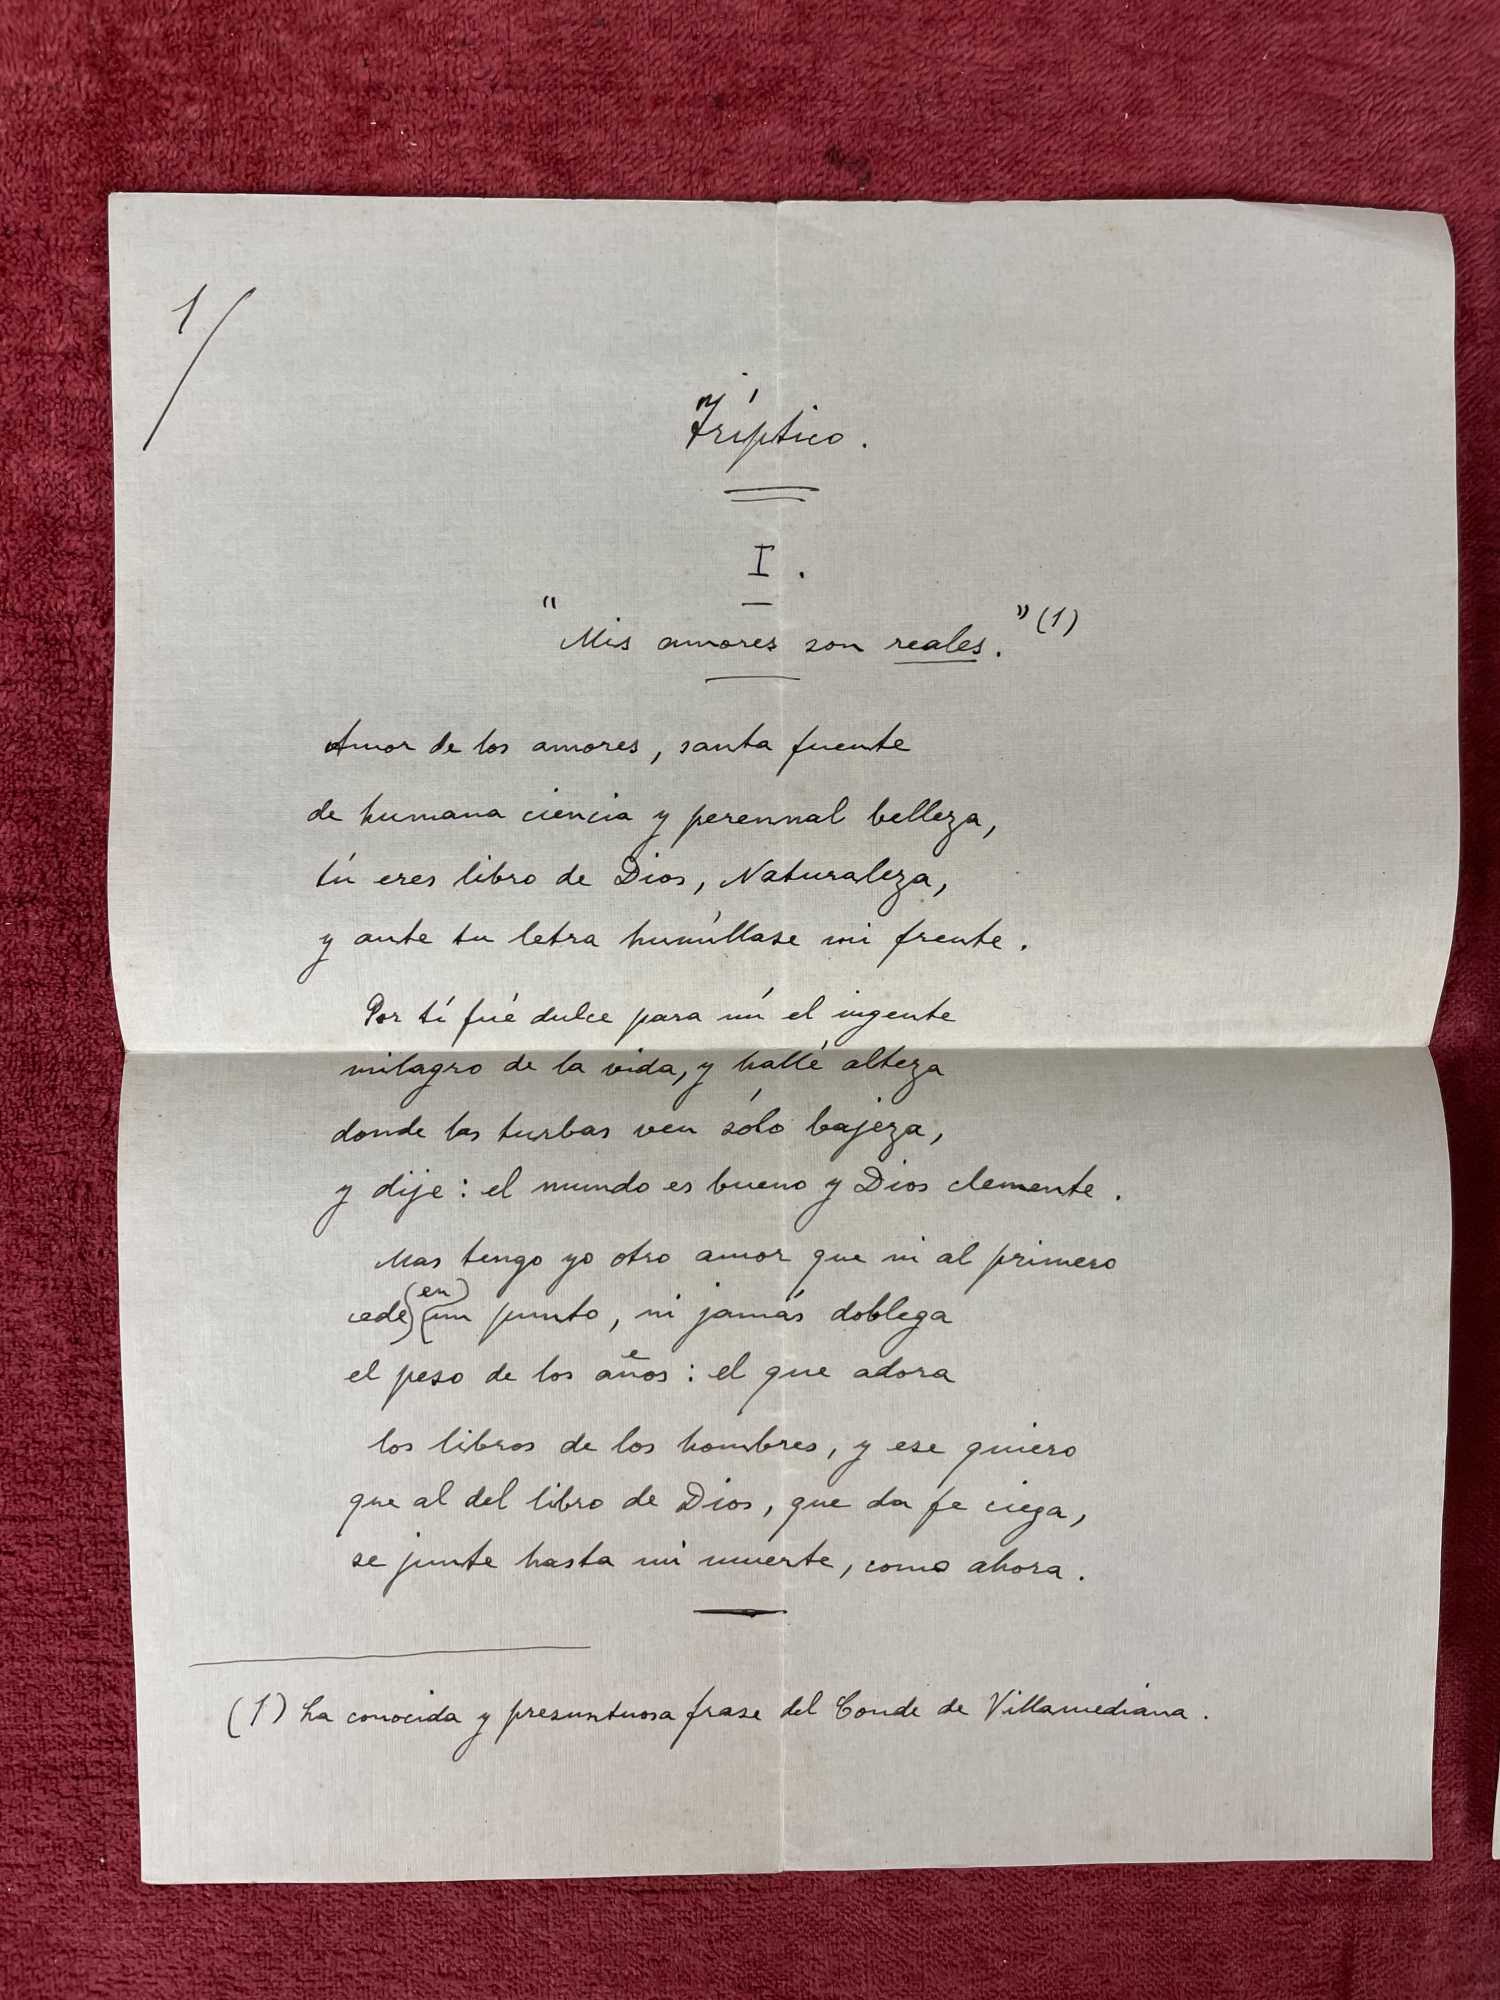 1/
Tríptico.
I.
"Mis amores son reales." (1)
Amor de los amores, santa fuente
de humana ciencia y perennal belleza,
tú eres libro de Dios, Naturaleza,
y ante tu letra humíllase mi frente.
Por tí fué dulce para mí el ingente
milagro de la vida, y hallé alteza
donde las turbas ven sólo bajeza,
y dije: el mundo es bueno y Dios clemente.
Mas tengo yo otro amor que ni al primero
cede (en) un punto, ni jamás doblega
el peso de los años: el que adora
los libros de los hombres, y ese quiero
que al del libro de Dios, que da fe ciega,
se junte hasta mi muerte, como ahora.
(1) La conocida y presuntuosa frase del Conde de Villamediana.